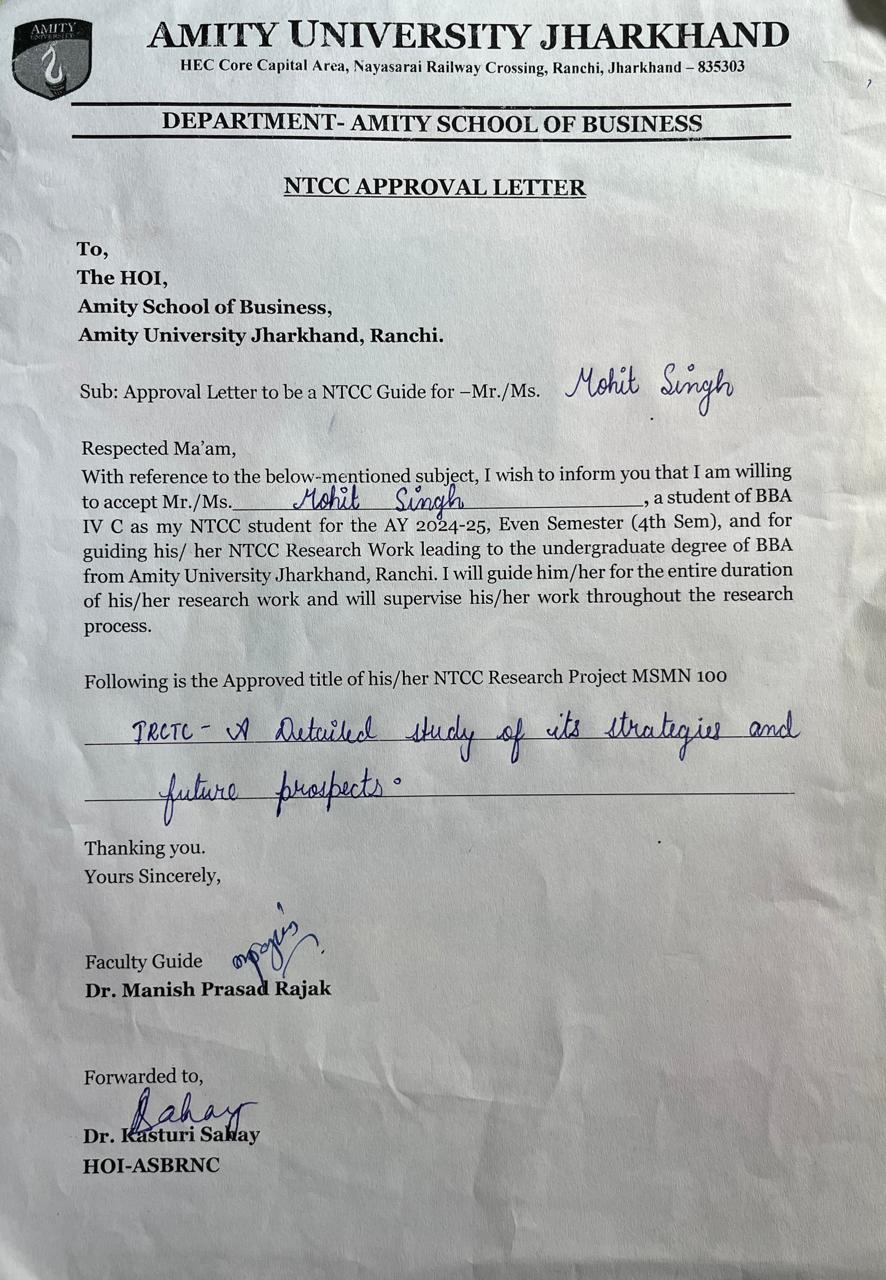 AMITY
UNIVERSITY
AMITY UNIVERSITY JHARKHAND
HEC Core Capital Area, Nayasarai Railway Crossing, Ranchi, Jharkhand – 835303
DEPARTMENT- AMITY SCHOOL OF BUSINESS
NTCC APPROVAL LETTER
To,
The HOI,
Amity School of Business,
Amity University Jharkhand, Ranchi.
Sub: Approval Letter to be a NTCC Guide for –Mr./Ms. Mohit Singh
Respected Ma'am,
With reference to the below-mentioned subject, I wish to inform you that I am willing
to accept Mr./Ms. Mohit Singh, a student of BBA
IV C as my NTCC student for the AY 2024-25, Even Semester (4th Sem), and for
guiding his/ her NTCC Research Work leading to the undergraduate degree of BBA
from Amity University Jharkhand, Ranchi. I will guide him/her for the entire duration
of his/her research work and will supervise his/her work throughout the research
process.
Following is the Approved title of his/her NTCC Research Project MSMN 100
IRCTC - A Detailed study of its strategies and
future prospects.
Thanking you.
Yours Sincerely,
Faculty Guide
Dr. Manish Prasad Rajak
Forwarded to,
Sahay
Dr. Kasturi Sahay
HOI-ASBRNC